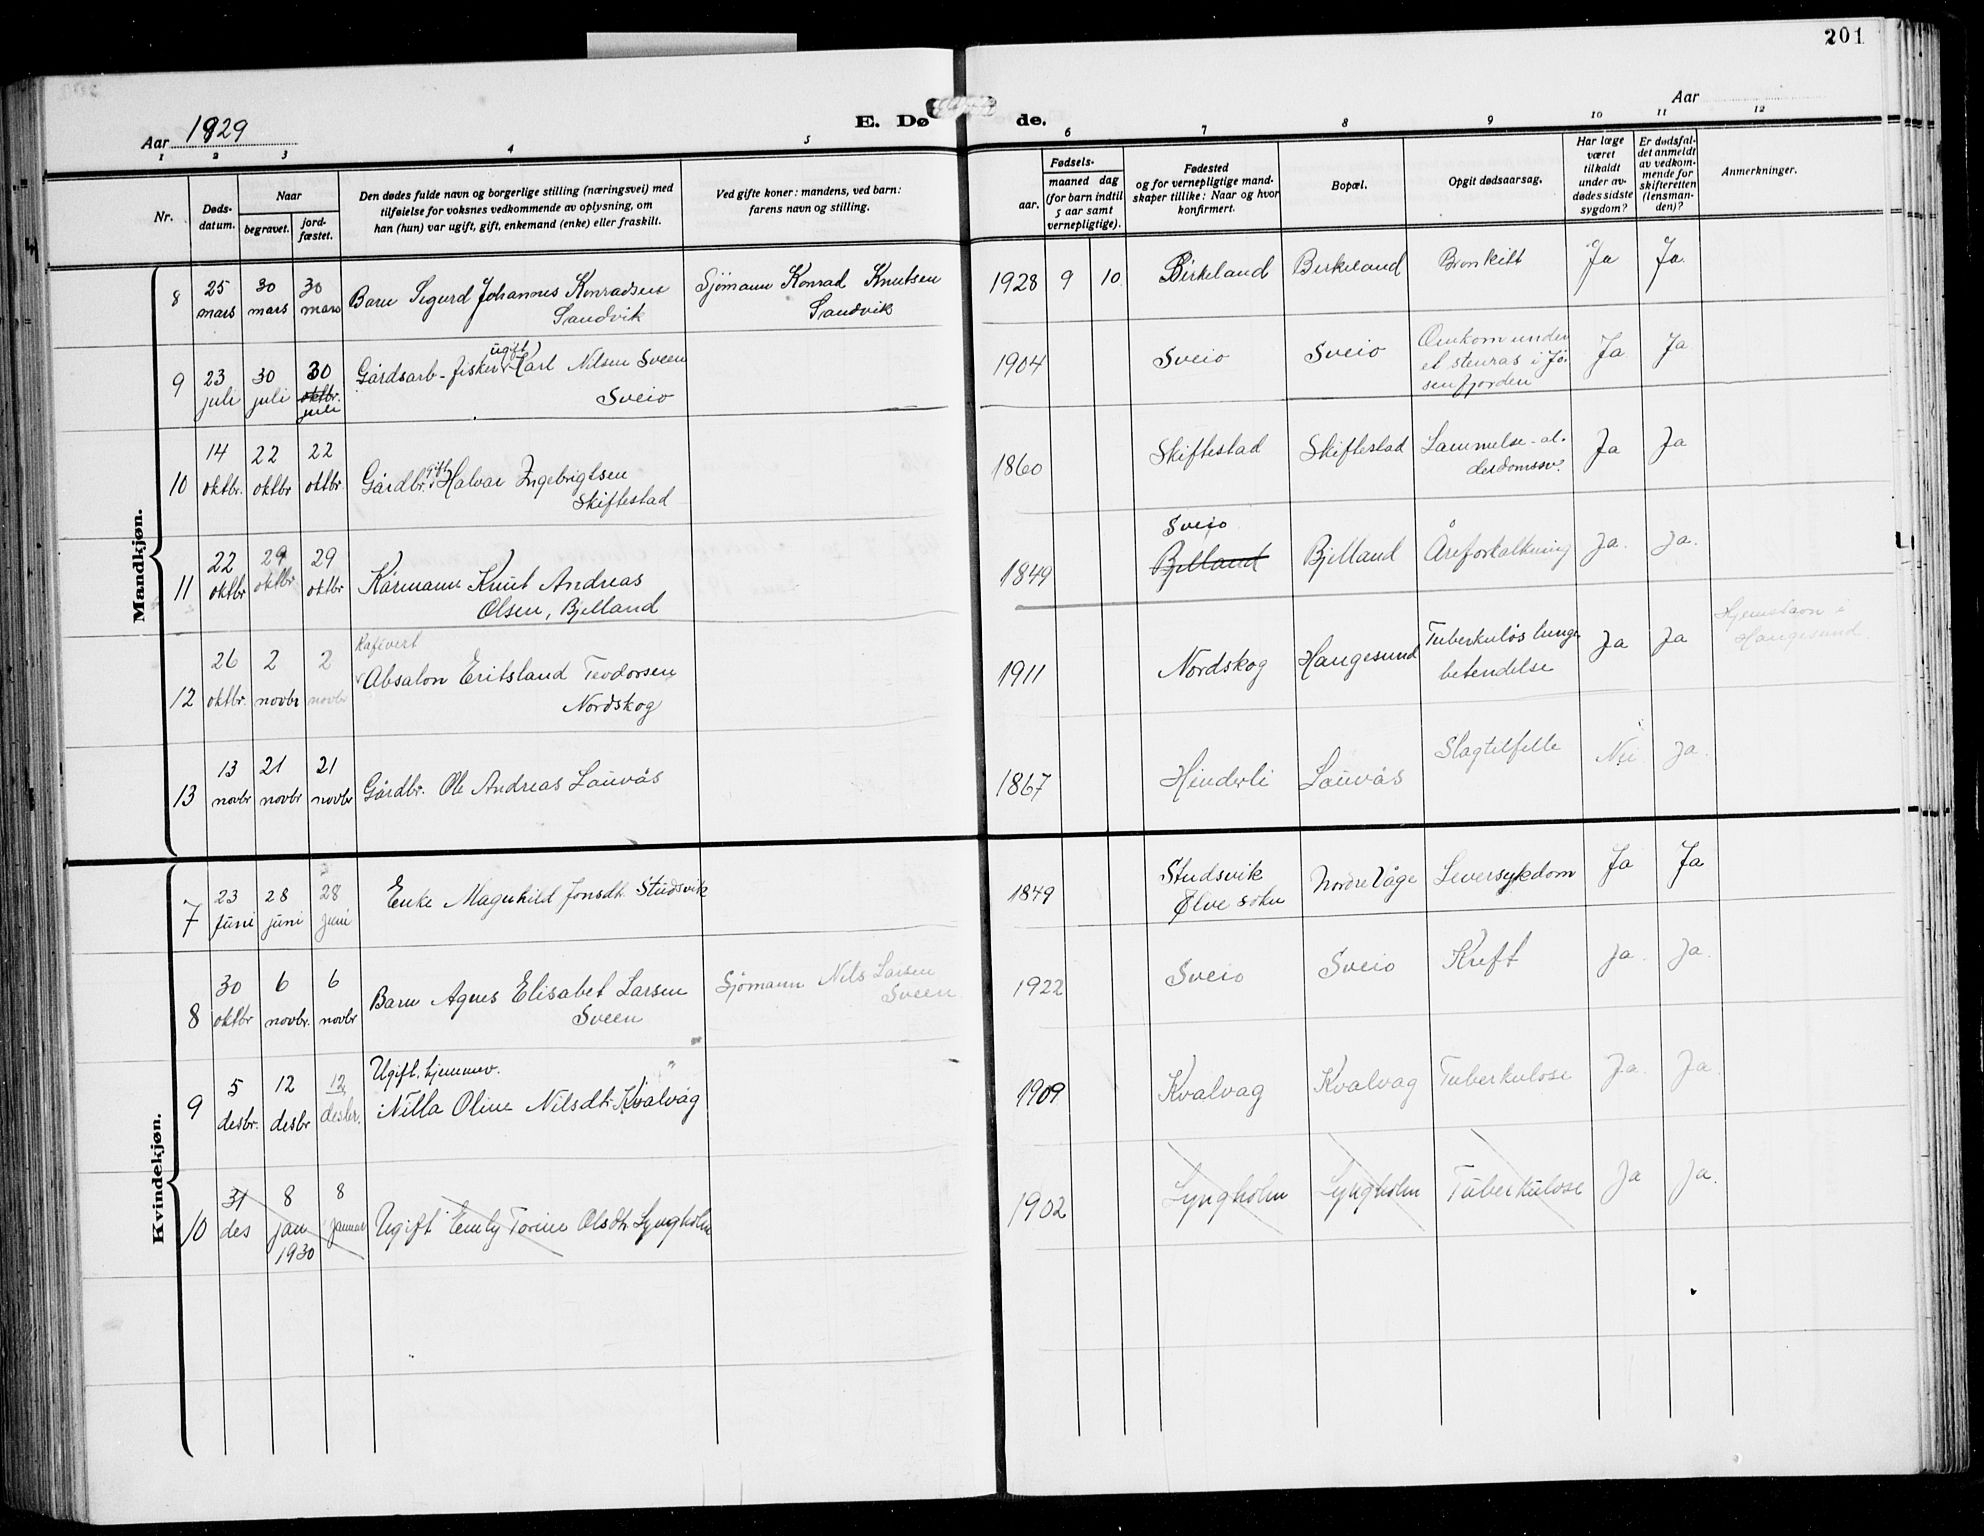 201
Aar 1929
E. Dø de.
Aar
1 2 3 4 5 6 7 8 9 10 11 12
Nr.
Døds-
datum.
Naar
begravet.
jord-
fæstet.
Den dødes fulde navn og borgerlige stilling (næringsvei) med
tilføielse for voksnes vedkommende av oplysning, om
han (hun) var ugift, gift, enkemand (enke) eller fraskilt.
Ved gifte koner: mandens, ved barn:
farens navn og stilling.
Fødsels-
aar.
maaned dag
(for barn indtil
5 aar samt
vernepligtige).
Fødested
og for vernepligtige mand-
skaper tillike: Naar og hvor
konfirmert.
Bopæl.
Opgit dødsaarsag.
Har læge
været
tilkaldt
under av-
dødes sidste
sygdom?
Er dødsfal-
det anmeldt
av vedkom-
mende for
skifteretten
(lensman-
den)?
Anmerkninger.
Mandkjøn.
8 25 mars 30 mars 30 mars Barn Sigurd Johannes Konradsen
Sandvik
Sjømann Konrad Knutsen
Sandvik
1928 9 10 Birkeland Birkeland Bronkilt Ja Ja
9 23 juli 30 juli 30 oktbr. juli Gårdsarb-fisker ugift Karl Nilsen Sveen
Sveio
1904 Sveio Sveio Omkom under
et stenras i Jø-
senfjorden
Ja Ja
10 14 oktbr. 22 oktbr 22 oktbr Gårdbr. gift Halvar Ingebrigtsen
Skiftestad
1860 Skiftestad Skiftestad Lammelse-al-
derdomssv.
Ja Ja
11 22 oktbr 29 oktbr 29 oktbr Kårmann Knut Andreas
Olsen, Bjelland
1849 Sveio
Bjelland Bjelland Åreforkalkning Ja. Ja.
12 26 oktbr. 2 novbr 2 novbr Kafivert
Absalon Eritsland Teodorsen
Nordskog
1911 Nordskog Haugesund Tuberkuløs lunge
betendelse
Ja Ja Hjemstavn i
Haugesund
13 13 novbr 21 novbr 21 novbr Gårdbr. Ole Andreas Lauvås
1867 Hinderli Lauvås Slagtilfelle Nei Ja.
Kvindekjøn.
7 23 juni 28 juni 28 juni Enke Magnhild Jonsdt. Studsvik
1849 Studsvik
Ølve sokn
Nordre Våge Leversykdom Ja Ja
8 30 oktbr 6 novbr. 6 novbr Barn Agnes Elisabet Larsen
Sveen
Sjømann Nils Larsen
Sveen
1922 Sveio Sveio Kreft Ja. Ja.
9 5 desbr. 12 desbr 12 desbr. Ugift, hjemmev.
Nilla Oline Nilsdt. Kvalvåg
1909 Kvalvag Kvalvag Tuberkulose Ja. Ja.
10 31 des 8 jan 1930 8 januar Ugift Emly Torine Olsdtr Lyngholm
1902 Lyngholm Lyngholm Tuberkulose Ja Ja.